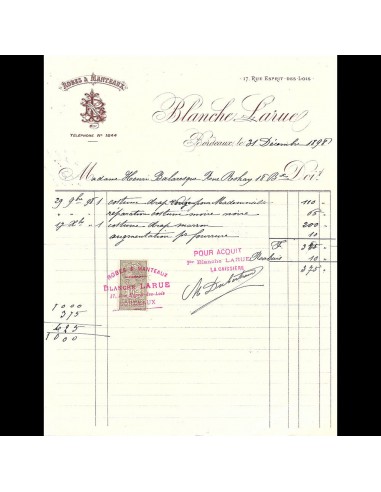 ROBES & MANTEAUX
TÉLÉPHONE Nº 1244
17, RUE ESPRIT-DES-LOIS
Blanche Larue
Bordeaux, le 31 Décembre 1898
Madame Henri Balaresque Doit
29 9bre 98 1 costume drap rouge pour Mademoiselle 110 "
réparation costume moire noire 65 "
17 Xbre " 1 costume drap marron 200 "
augmentation pr fourrure 10 "
F. 385 "
10 "
375 "
POUR ACQUIT
Pr Blanche LARUE
LA CAISSIÈRE
ROBES & MANTEAUX
BLANCHE LARUE
17, Rue Esprit-des-Lois
BORDEAUX
1000
375
625
1000